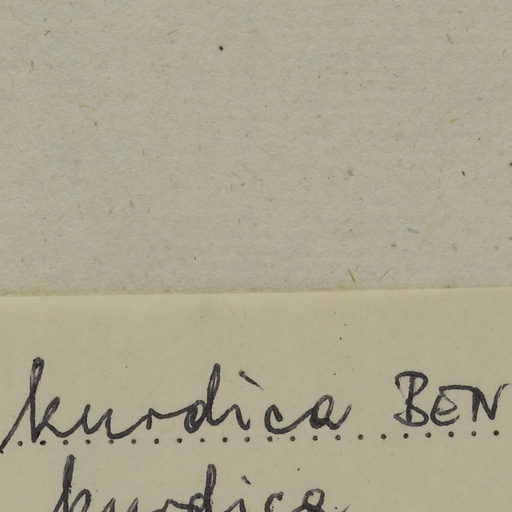 kurdica BEN
kurdica